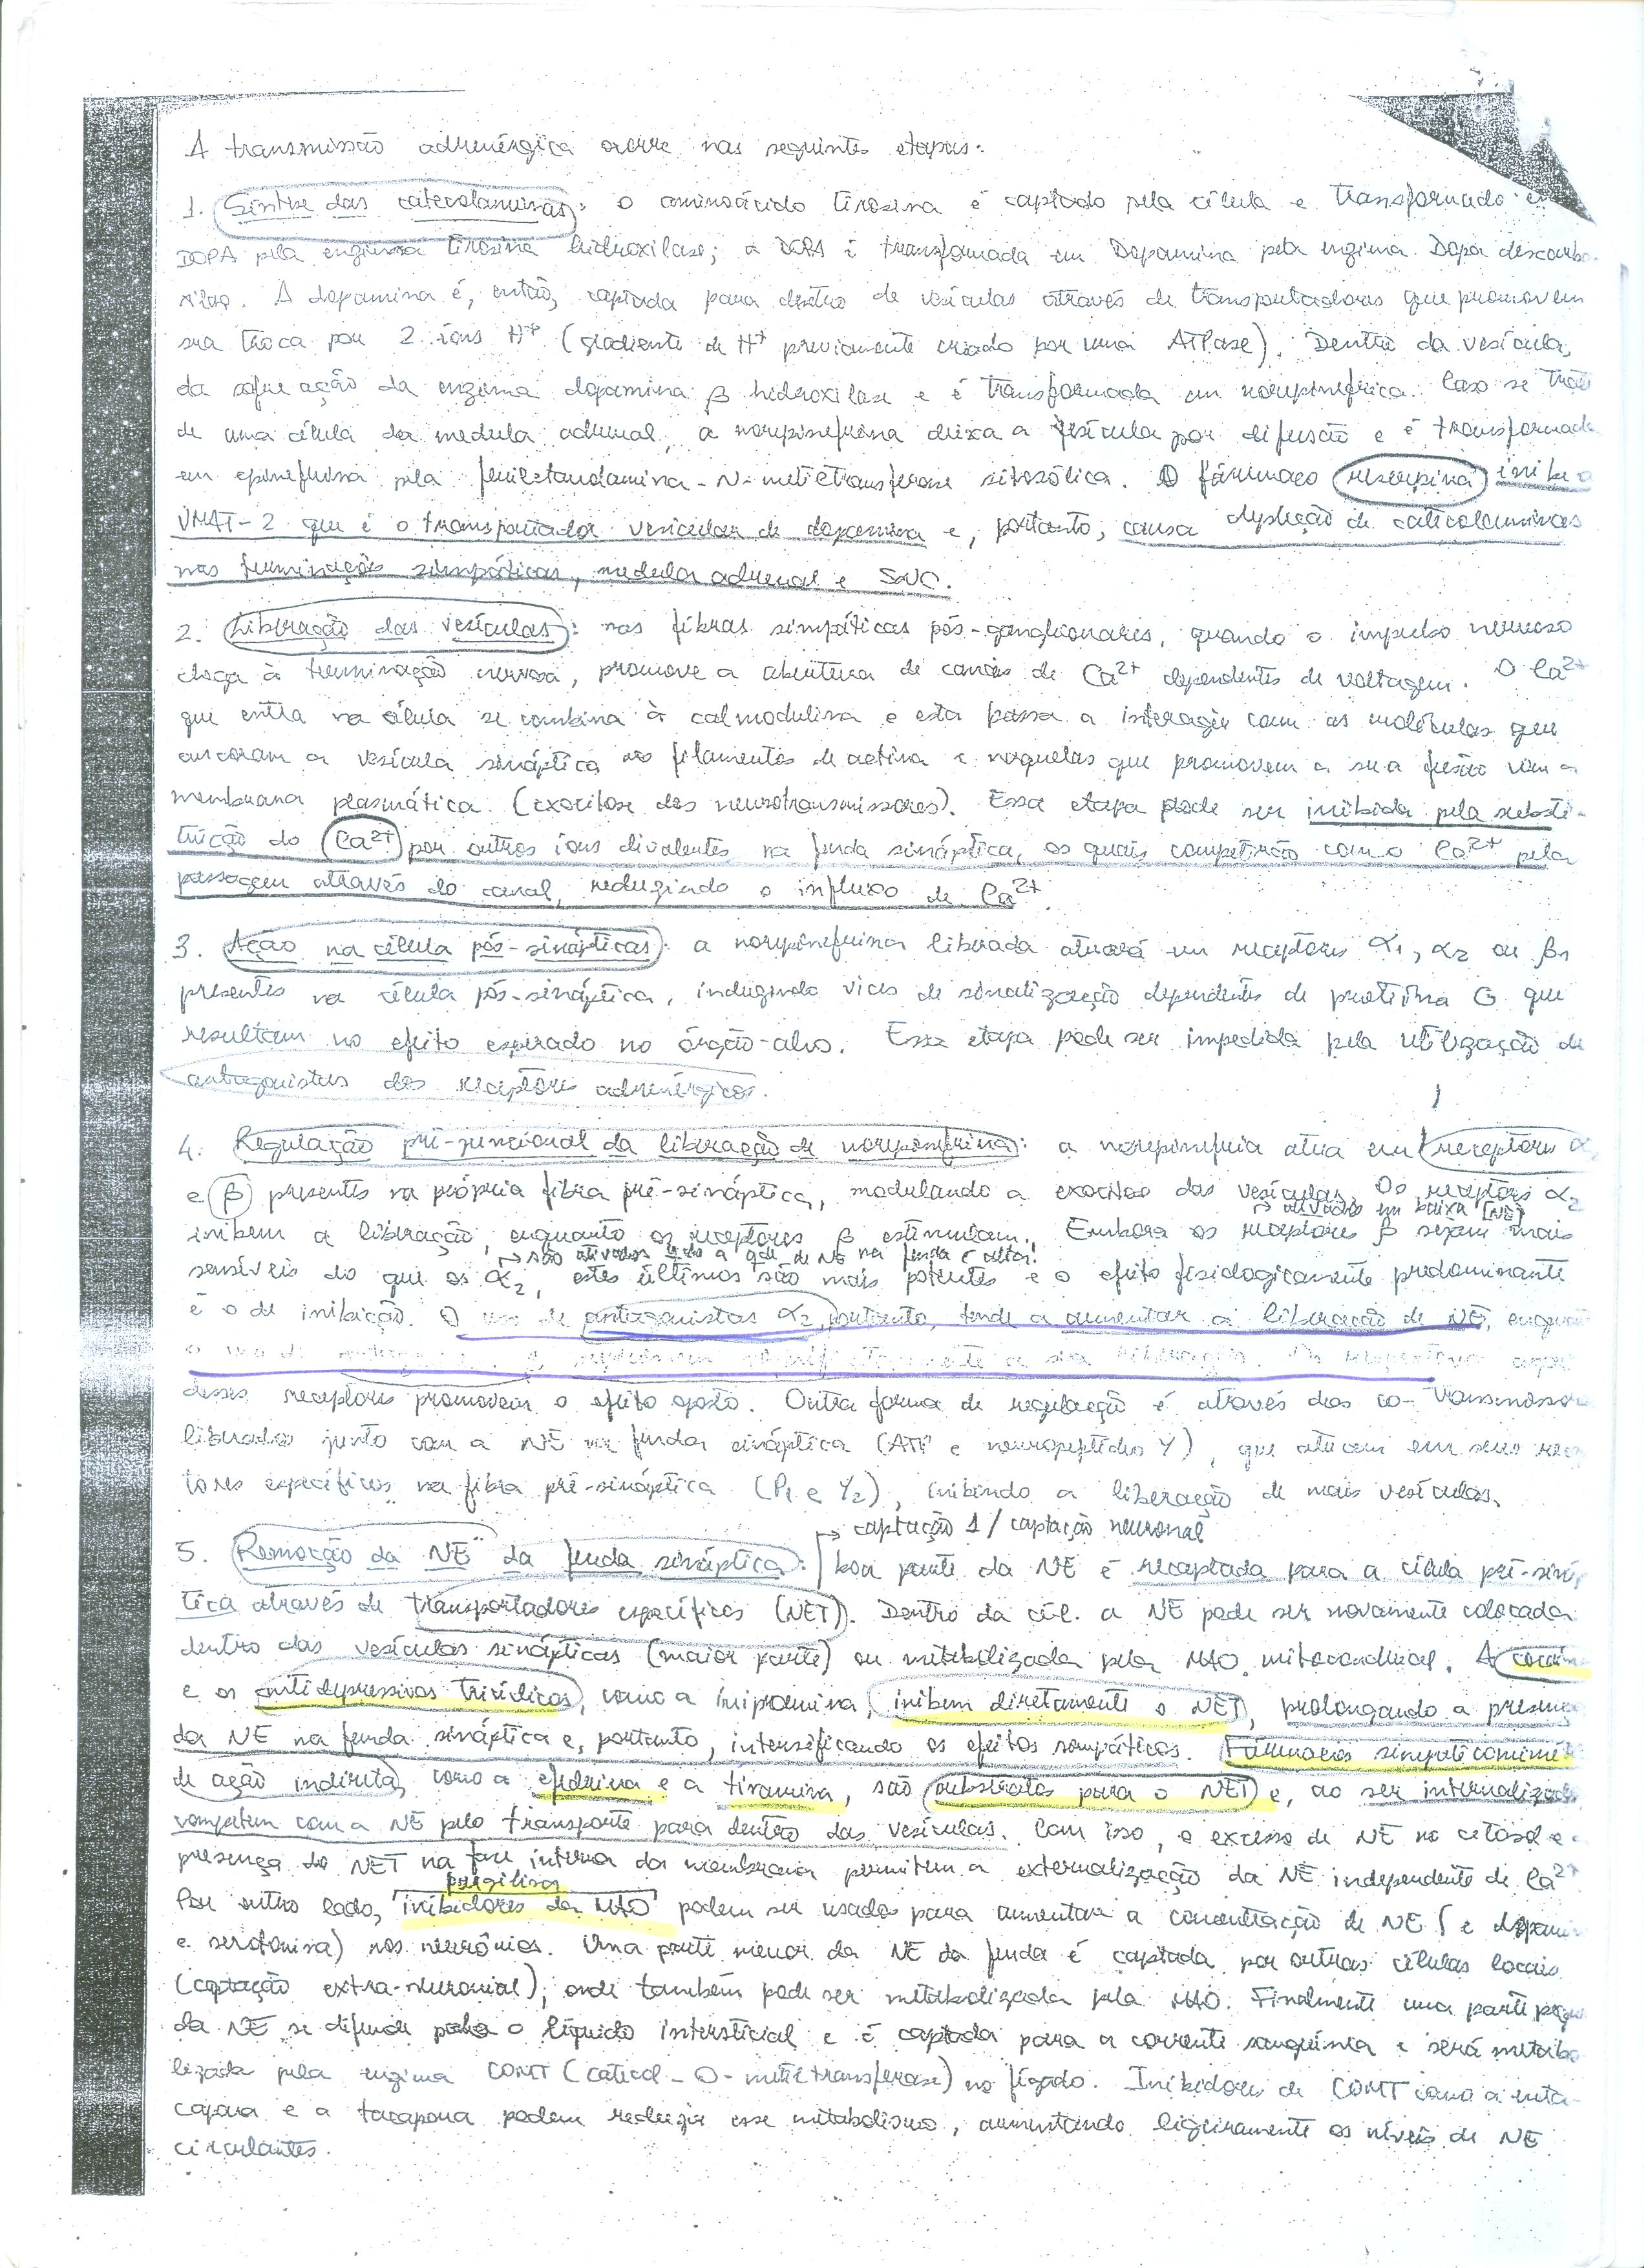 A transmissão adrenérgica ocorre nas seguintes etapas:
1. Síntese das catecolaminas: o aminoácido tirosina é captado pela célula e transformado em
DOPA pela enzima tirosina hidroxilase; a DOPA é transformada em Dopamina pela enzima Dopa descarbo-
xilase. A dopamina é, então, captada para dentro de vesículas através de transportadores que promovem
sua troca por 2 íons H+ (gradiente de H+ previamente criado por uma ATPase). Dentro da vesícula,
da sofre ação da enzima dopamina β hidroxilase e é transformada em norepinefrina. Caso se trate
de uma célula da medula adrenal, a norepinefrina deixa a vesícula por difusão e é transformada
em epinefrina pela feniletanolamina-N-metiltransferase citosólica. O fármaco reserpina inibe o
VMAT-2 que é o transportador vesicular de dopamina e, portanto, causa depleção de catecolaminas
nas terminações simpáticas, medula adrenal e SNC.
2. Liberação das vesículas: nas fibras simpáticas pós-ganglionares, quando o impulso nervoso
chega à terminação nervosa, promove a abertura de canais de Ca2+ dependentes de voltagem. O Ca2+
que entra na célula se combina à calmodulina e esta passa a interagir com as moléculas que
ancoram a vesícula sináptica aos filamentos de actina e naquelas que promovem a sua fusão com a
membrana plasmática (exocitose dos neurotransmissores). Essa etapa pode ser inibida pela substi-
tuição do Ca2+ por outros íons divalentes na fenda sináptica, os quais competirão com o Ca2+ pela
passagem através do canal, reduzindo o influxo de Ca2+.
3. Ação na célula pós-sinápticas: a norepinefrina liberada atuará em receptores α1, α2 ou β1
presentes na célula pós-sináptica, induzindo vias de sinalização dependentes de proteína G que
resultam no efeito esperado no órgão-alvo. Essa etapa pode ser impedida pela utilização de
antagonistas dos receptores adrenérgicos.
4. Regulação pré-juncional da liberação de norepinefrina: a norepinefria atua em receptores α
e β presentes na própria fibra pré-sináptica, modulando a exocitose das vesículas. Os receptores α2
→ ativados em baixa [NE]
inibem a liberação, enquanto os receptores β estimulam. Embora os receptores β sejam mais
→ são ativados qdo a qde de NE na fenda é alta!
sensíveis do que os α2, estes últimos são mais potentes e o efeito fisiologicamente predominante
é o de inibição. O uso de antagonistas α2, portanto, tende a aumentar a liberação de NE, enquan
o uso de a sua liberação. Os
desses receptores promovem o efeito oposto. Outra forma de regulação é através dos co-transmissor
liberados junto com a NE na fenda sináptica (ATP e neuropeptídio Y), que atuam em seus rec
tores específicos na fibra pré-sináptica (P1 e Y2), inibindo a liberação de mais vesículas.
→ captação 1 / captação neuronal
5. Remoção da NE da fenda sináptica: boa parte da NE é recaptada para a célula pré-sináp
tica através de transportadores específicos (NET). Dentro da cél. a NE pode ser novamente colocada
dentro das vesículas sinápticas (maior parte) ou metabolizada pela MAO mitocondrial. A cocaína
e os antidepressivos tricíclicos, como a imipramina, inibem diretamente o NET, prolongando a presença
da NE na fenda sináptica e, portanto, intensificando os efeitos simpáticos. Fármacos simpaticomimé
de ação indireta, como a efedrina e a tiramina, são substratos para o NET e, ao ser internalizados
competem com a NE pelo transporte para dentro das vesículas. Com isso, o excesso de NE no citosol e a
presença do NET na face interna da membrana permitem a externalização da NE independente de Ca2+
pargilina
Por outro lado, inibidores da MAO podem ser usados para aumentar a concentração de NE (e dopami
e serotonina) nos neurônios. Uma parte menor da NE da fenda é captada por outras células locais
(captação extra-neuronial), onde também pode ser metabolizada pela MAO. Finalmente uma parte peque
da NE se difunde para o líquido intersticial e é captada para a corrente sanguínea e será metabo
lizada pela enzima COMT (catecol-O-metiltransferase) no fígado. Inibidores de COMT como a enta-
capona e a tocapona podem reduzir esse metabolismo, aumentando ligeiramente os níveis de NE
circulantes.